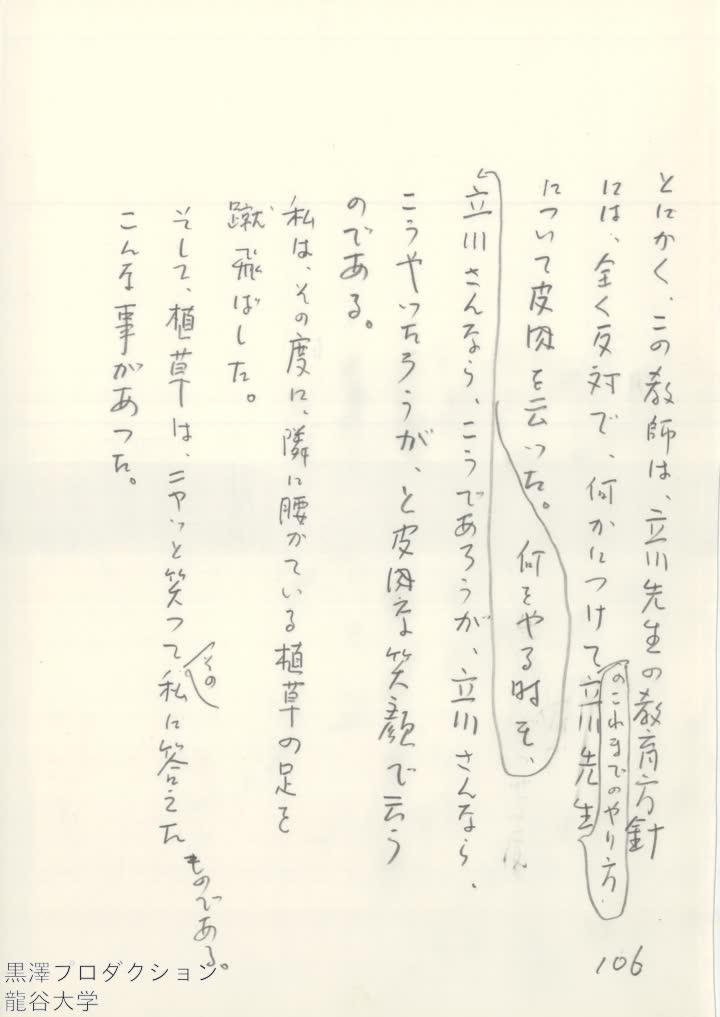 とにかく、この教師は、立川先生の教育方針
には、全く反対で、何かにつけて立川先生
のこれまでのやり方
について皮肉を云った。何をやる時も、
立川さんなら、こうであろうが、立川さんなら、
こうやいったろうが、と皮肉な笑顔で云う
のである。
私は、その度に、隣に腰かている植草の足を
蹴飛ばした。
そして、植草は、ニヤッと笑って私に答えた
その
ものである。
こんな事があった。
106
黒澤プロダクション
龍谷大学